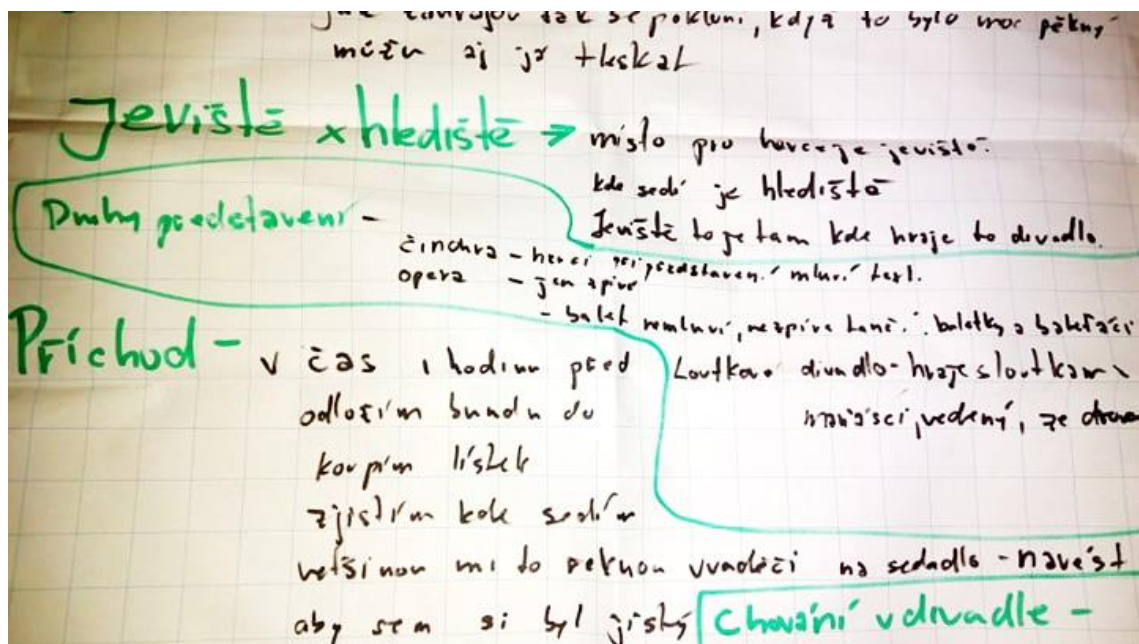 tak se pokloní, když to bylo moc pěkný
můžu aj já tleskat
Jeviště x hlediště → místo pro herce je jeviště.
kde sedí je hlediště
Jeviště to je tam kde hraje to divadlo.
Druhy představení -
činohra - herci při představení mluví text.
opera - jen zpívá
- balet nemluví, nezpívá tančí. baletky a baleťáci
Loutkové divadlo - hraje s loutkam
maňásci, vedený, ze dřeva
Příchod - v čas 1 hodinu před
odložím bundu do
koupím lístek
zjistím kde sedím
vetšinou mi to řeknou uvaděči na sedadlo - navést
aby sem si byl jistý
Chování v divadle -